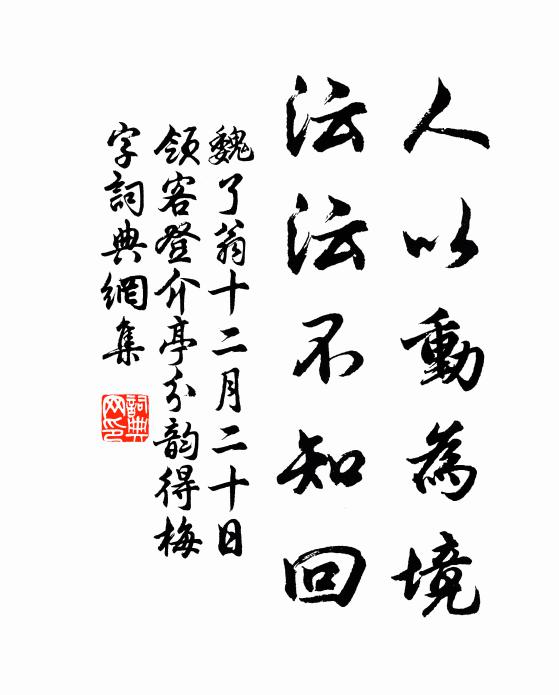 人以動為境
沄沄不知回
魏了翁十二月二十日
領客登介亭分韵得梅
字詞典網集
詞典網印